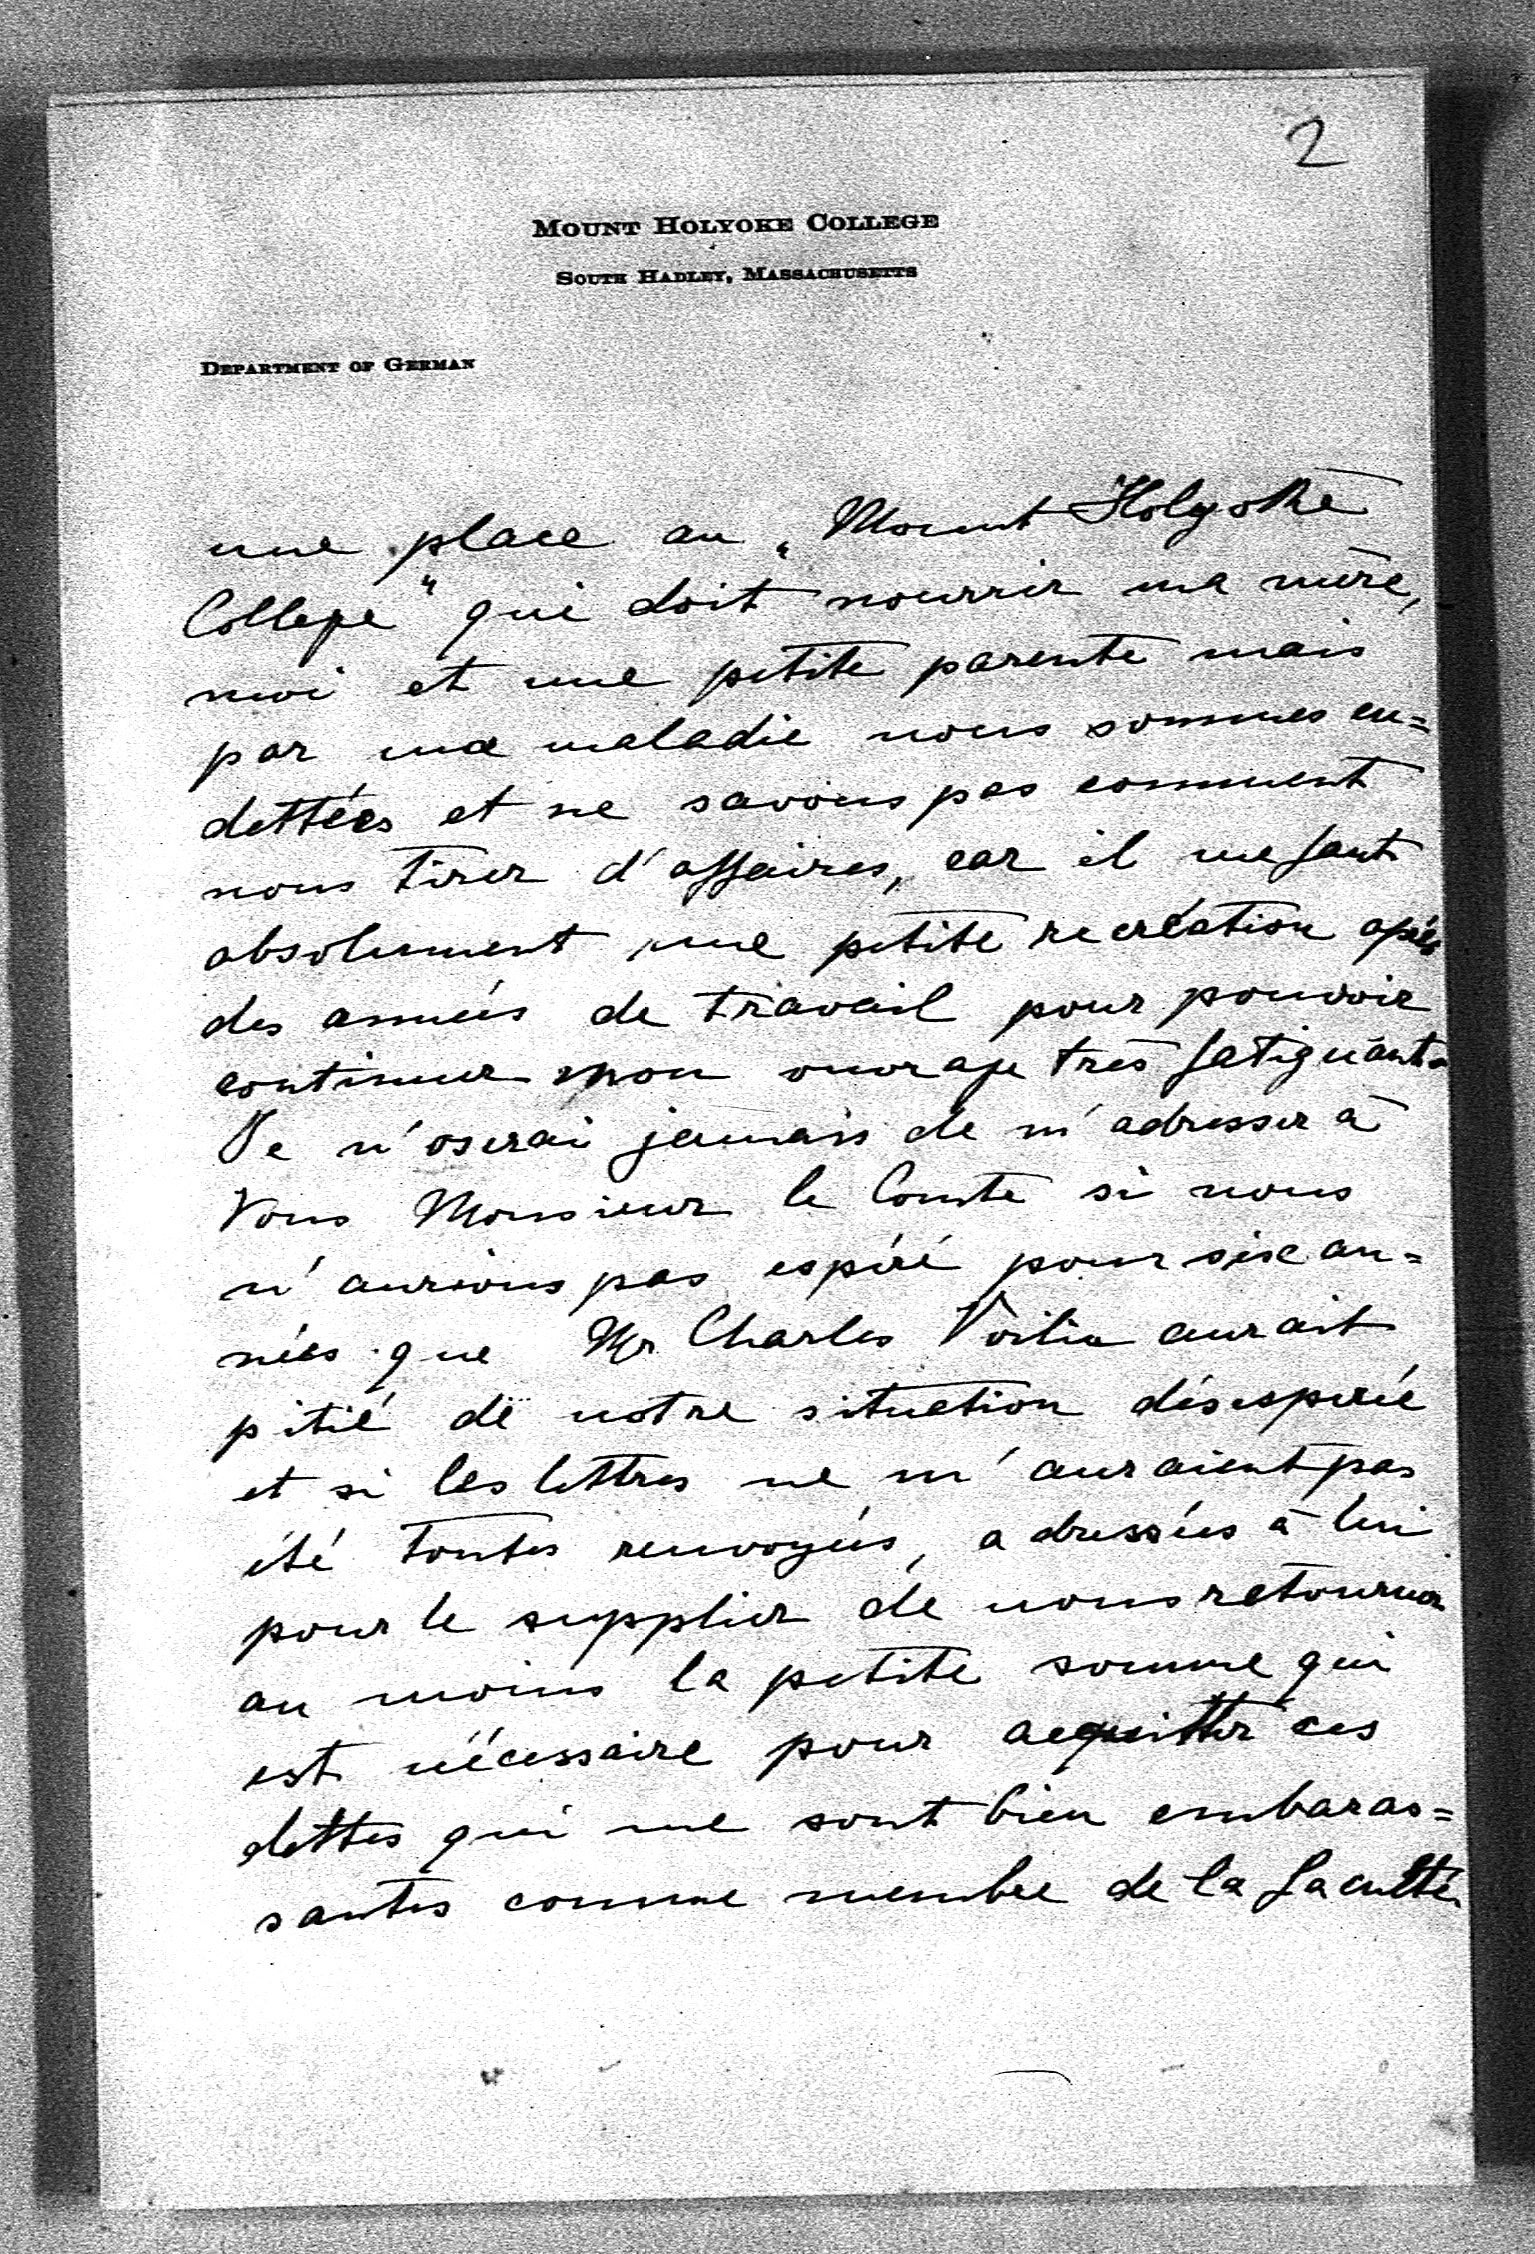 2
MOUNT HOLYOKE COLLEGE
SOUTH HADLEY, MASSACHUSETTS
DEPARTMENT OF GERMAN
une place au „Mount Holyoke
College" qui doit nourrir ma mère,
moi et une petite parente mais
par ma maladie nous sommes en=
dettées et ne savons pas comment
nous tirer d'affaires, car il me faut
absolument une petite recréation après
des années de travail pour pouvoir
continuer mon ouvrage très fatiguant.
Je n'oserai jamais de m'adresser à
Vous Monsieur le Comte si nous
n'aurions pas espéré pour six an=
nées que Mr Charles aurait
pitié de notre situation désesperée
et si les lettres ne m'auraient pas
été toutes renvoyées, adressées à lui
pour le supplier de nous retourner
au moins la petite somme qui
est nécessaire pour acquitter ces
dettes qui me sont bien embaras=
santes comme membre de la faculté.